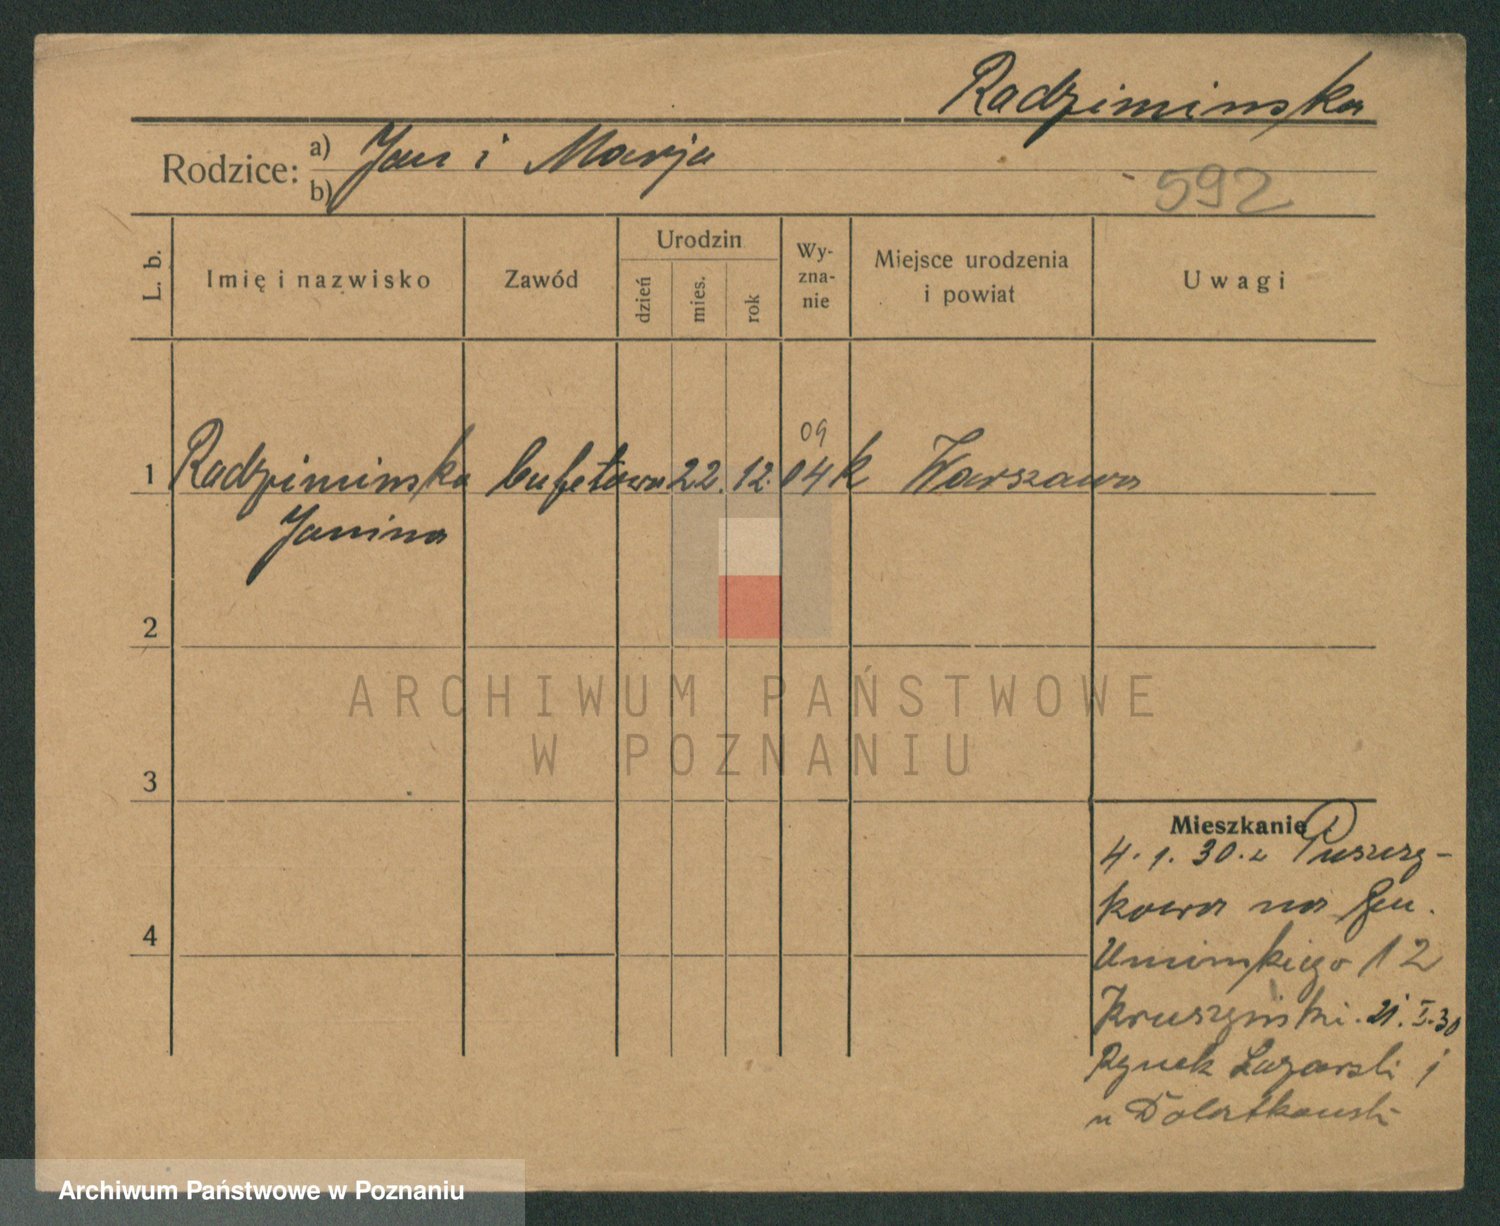 Radzimińska
Rodzice: a) Jan i Marja
b)
592
L. b.
Imię i nazwisko
Zawód
Urodzin
dzień
mies.
rok
Wy-
zna-
nie
Miejsce urodzenia
i powiat
Uwagi
09
1 Radzimińska bufetowa 22. 12. 04 k Warszawa
Janina
2
3
4
ARCHIWUM PAŃSTWOWE
W POZNANIU
Mieszkanie
4. 1. 30. z Puszcz-
kowa na Gen.
Umińskiego 12
Kruszyński. 21. I. 30
Rynek Łazarski 1
u
Archiwum Państwowe w Poznaniu